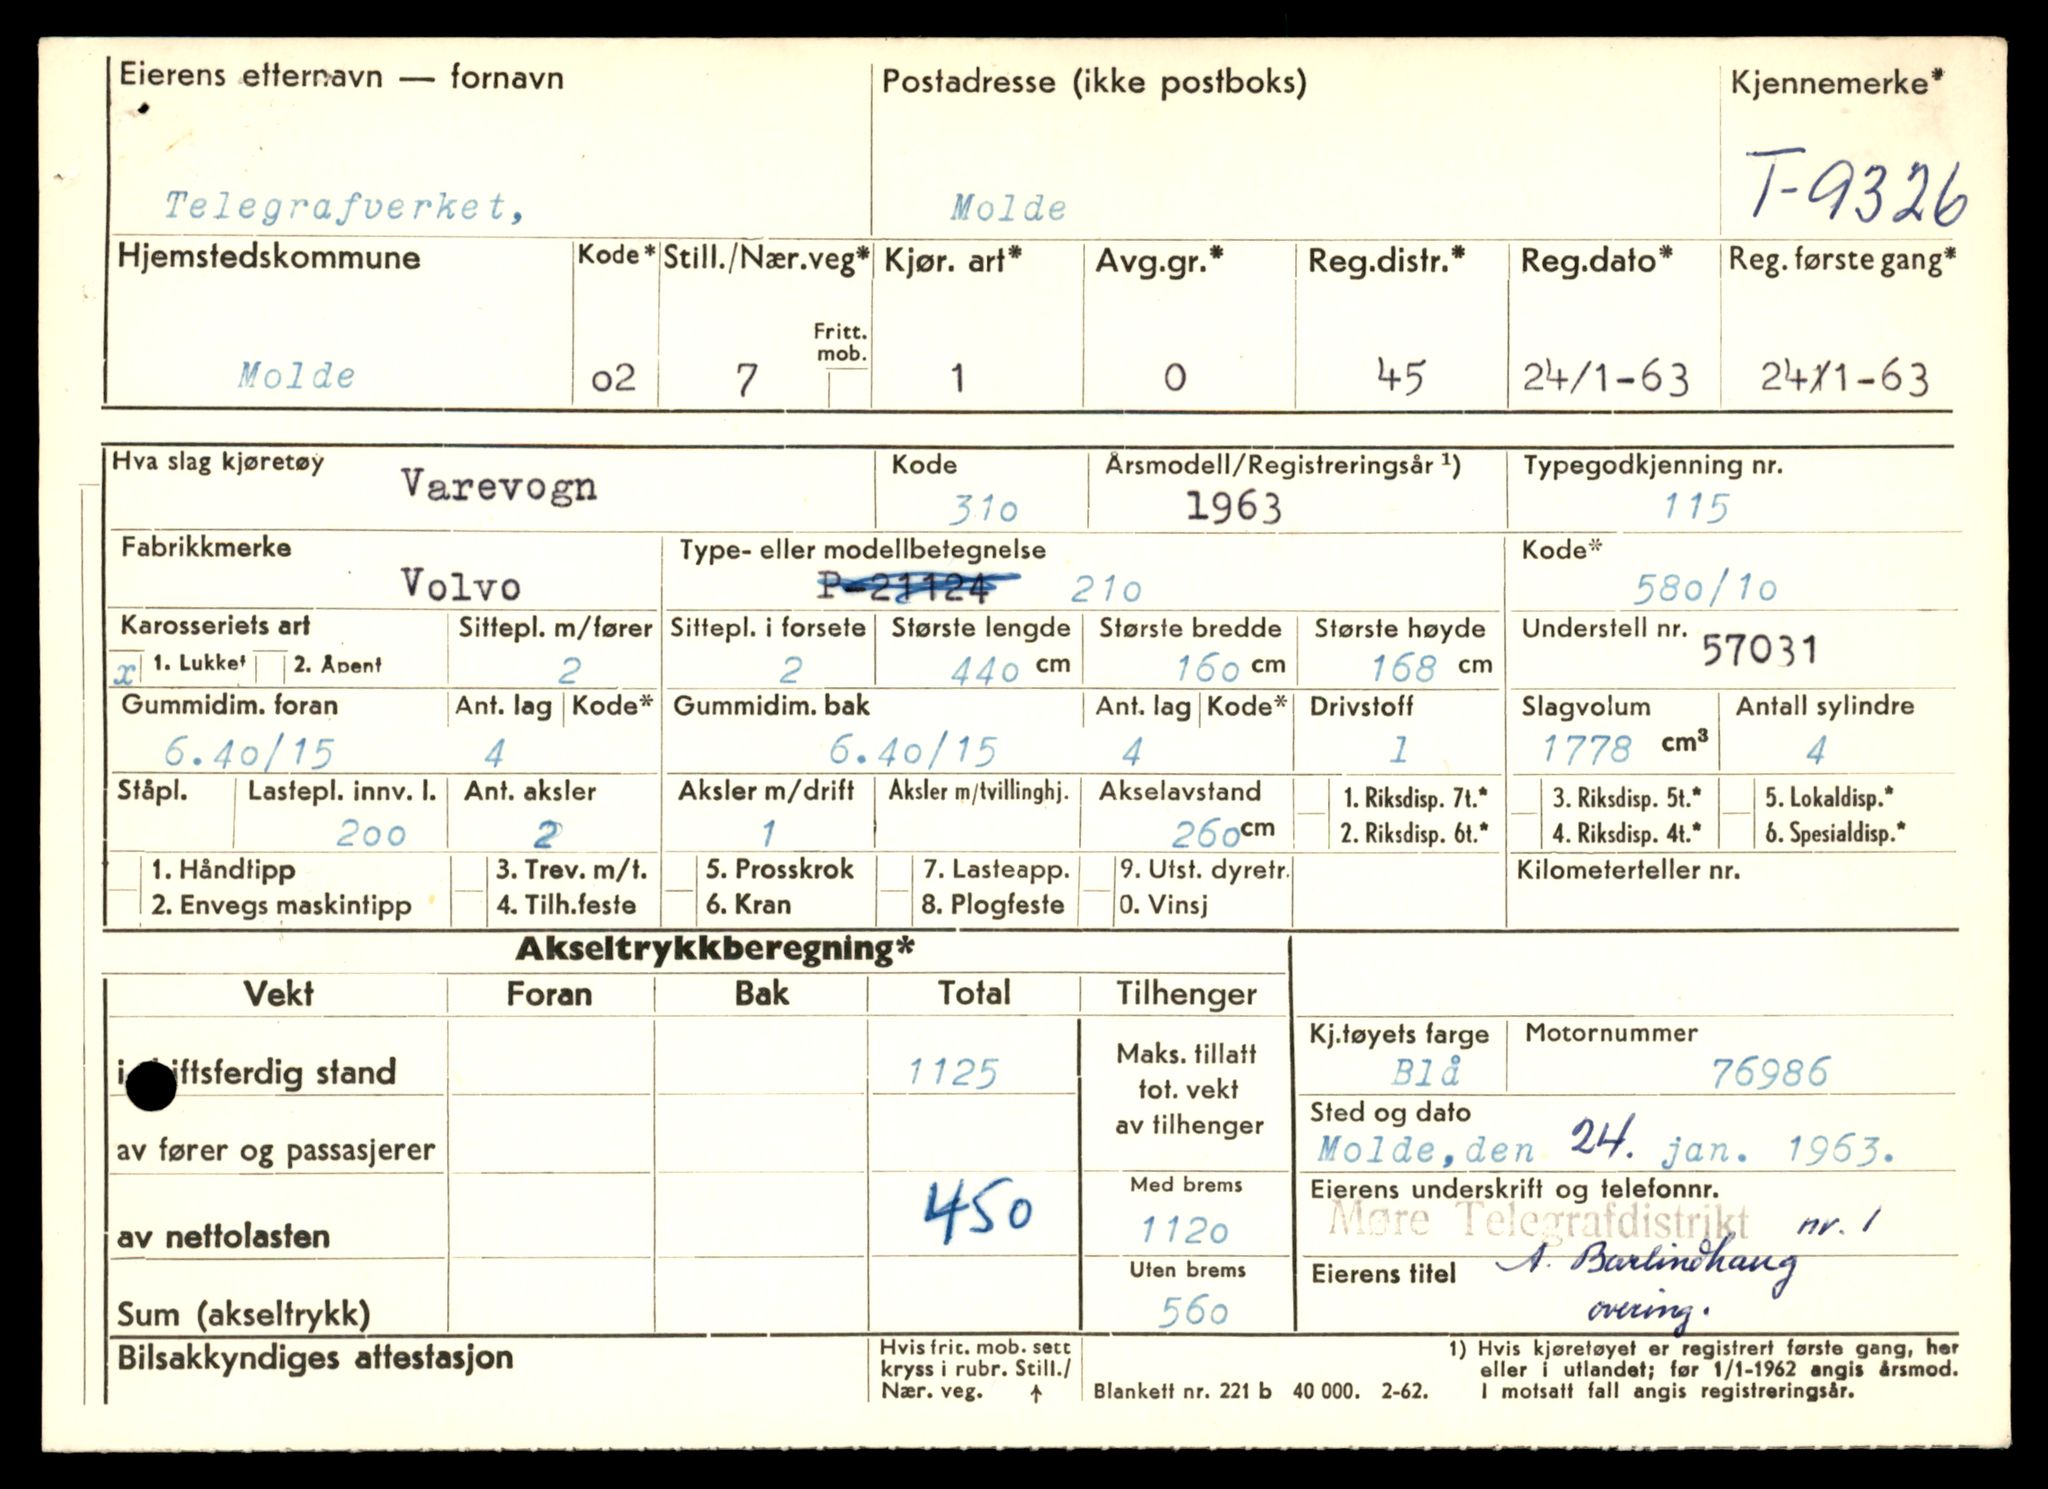 Eierens etternavn — fornavn Postadresse (ikke postboks) Kjennemerke*
Telegrafverket, Molde T-9326
Hjemstedskommune Kode* Still./Nær.veg* Kjør. art* Avg.gr.* Reg.distr.* Reg.dato* Reg. første gang*
Fritt.
mob.
Molde 02 7 1 0 45 24/1-63 24/1-63
Hva slag kjøretøy Varevogn Kode Årsmodell/Registreringsår ¹) Typegodkjenning nr.
310 1963 115
Fabrikkmerke Type- eller modellbetegnelse Kode*
Volvo P-21124 210 580/10
Karosseriets art Sittepl. m/fører Sittepl. i forsete Største lengde Største bredde Største høyde Understell nr. 57031
x 1. Lukket 2. Åpent 2 2 440 cm 160 cm 168 cm
Gummidim. foran Ant. lag Kode* Gummidim. bak Ant. lag Kode* Drivstoff Slagvolum Antall sylindre
6.40/15 4 6.40/15 4 1 1778 cm³ 4
Ståpl. Lastepl. innv. l. Ant. aksler Aksler m/drift Aksler m/tvillinghj. Akselavstand 1. Riksdisp. 7t.* 3. Riksdisp. 5t.* 5. Lokaldisp.*
200 2 1 260 cm 2. Riksdisp. 6t.* 4. Riksdisp. 4t.* 6. Spesialdisp.*
1. Håndtipp 3. Trev. m/t. 5. Prosskrok 7. Lasteapp. 9. Utst. dyretr. Kilometerteller nr.
2. Envegs maskintipp 4. Tilh.feste 6. Kran 8. Plogfeste 0. Vinsj
Akseltrykkberegning*
Vekt Foran Bak Total Tilhenger
Kj.tøyets farge Motornummer
i driftsferdig stand 1125 Maks. tillatt
tot. vekt
av tilhenger
Blå 76986
Sted og dato
av fører og passasjerer Molde, den 24. jan. 1963.
Med brems Eierens underskrift og telefonnr.
av nettolasten 450 1120 Møre Telegrafdistrikt nr. 1
Uten brems Eierens titel A. Barlindhaug
Sum (akseltrykk) 560 overing.
Bilsakkyndiges attestasjon
Hvis frit. mob. sett
kryss i rubr. Still./
Nær. veg. ↑
Blankett nr. 221 b 40 000. 2-62.
1) Hvis kjøretøyet er registrert første gang, her
eller i utlandet; før 1/1-1962 angis årsmod.
I motsatt fall angis registreringsår.